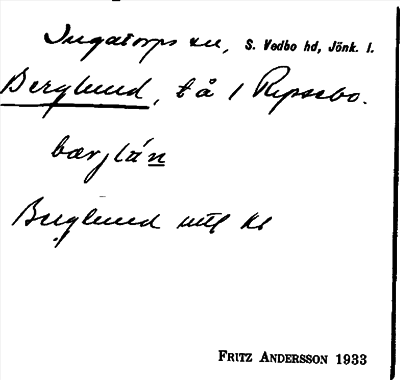 Ingatorps sn, S. Vedbo hd, Jönk. l.
Berglund, t å 1 Ripsebo.
bærjlán
Berglund utt kl
FRITZ ANDERSSON 1933